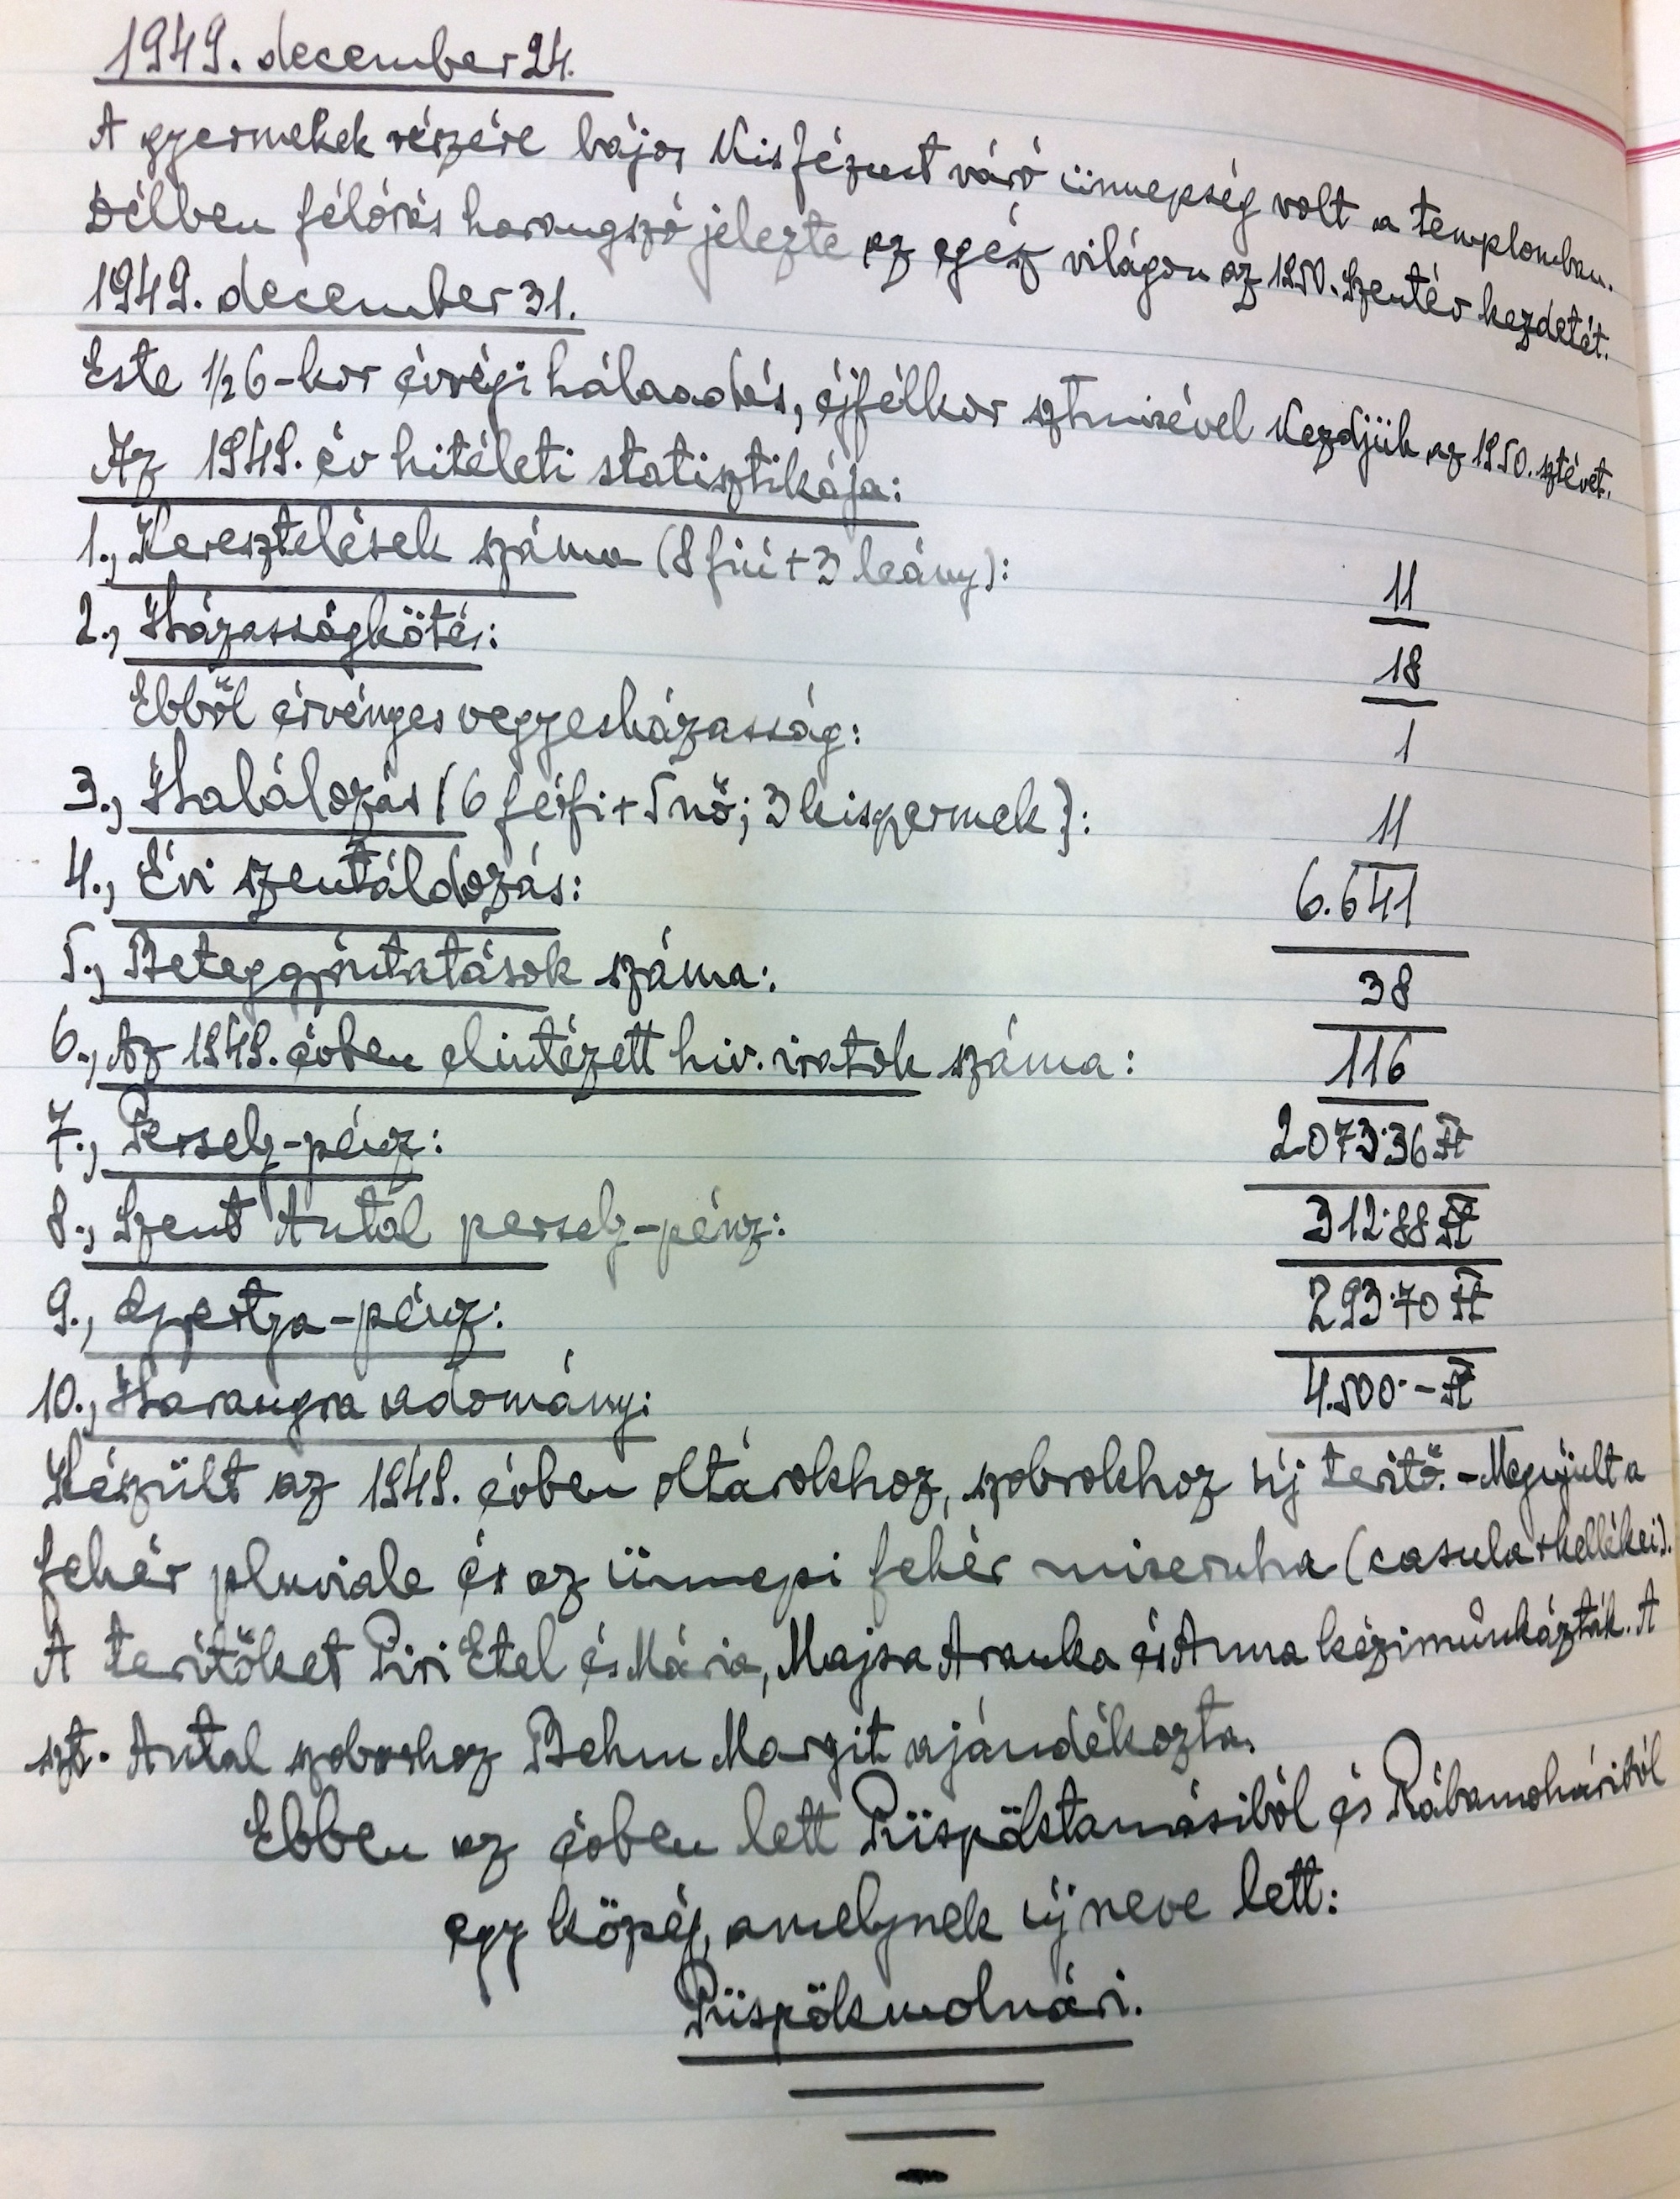 1949. december 24.
A gyermekek részére bájos Kis Jézust váró ünnepség volt a templomban.
Délben félórás harangszó jelezte az egész világon az 1950. Szentév kezdetét.
1949. december 31.
Este 1/2 6-kor évvégi hálaadás, éjfélkor sztmisével kezdjük az 1950. sztévet.
Az 1949. év hitéleti statisztikája:
1., Keresztelések száma (8 fiú + 3 leány): 11
2., Házasságkötés: 18
Ebből érvényes vegyesházasság: 1
3., Halálozás (6 férfi + 5 nő; 3 kisgyermek): 11
4., Évi szentáldozás: 6.641
5., Beteggyóntatások száma: 38
6., Az 1949. évben elintézett hiv. iratok száma: 116
7., Persely-pénz: 2073·36 Ft
8., Szent Antal persely-pénz: 312·88 Ft
9., Gyertya-pénz: 293·70 Ft
10., Harangra adomány: 4.500·- Ft
Készült az 1949. évben oltárokhoz, szobrokhoz új terítő. - Megújult a
fehér pluviale és az ünnepi fehér miseruha (casula + kellékei).
A terítőket Piri Etel és Mária, Majsa Aranka és Anna kézimunkázták. A
szt. Antal szoborhoz Behm Margit ajándékozta.
Ebben az évben lett Püspöktamásiból és Rábamolnáriból
egy község, amelynek új neve lett:
Püspökmolnári.